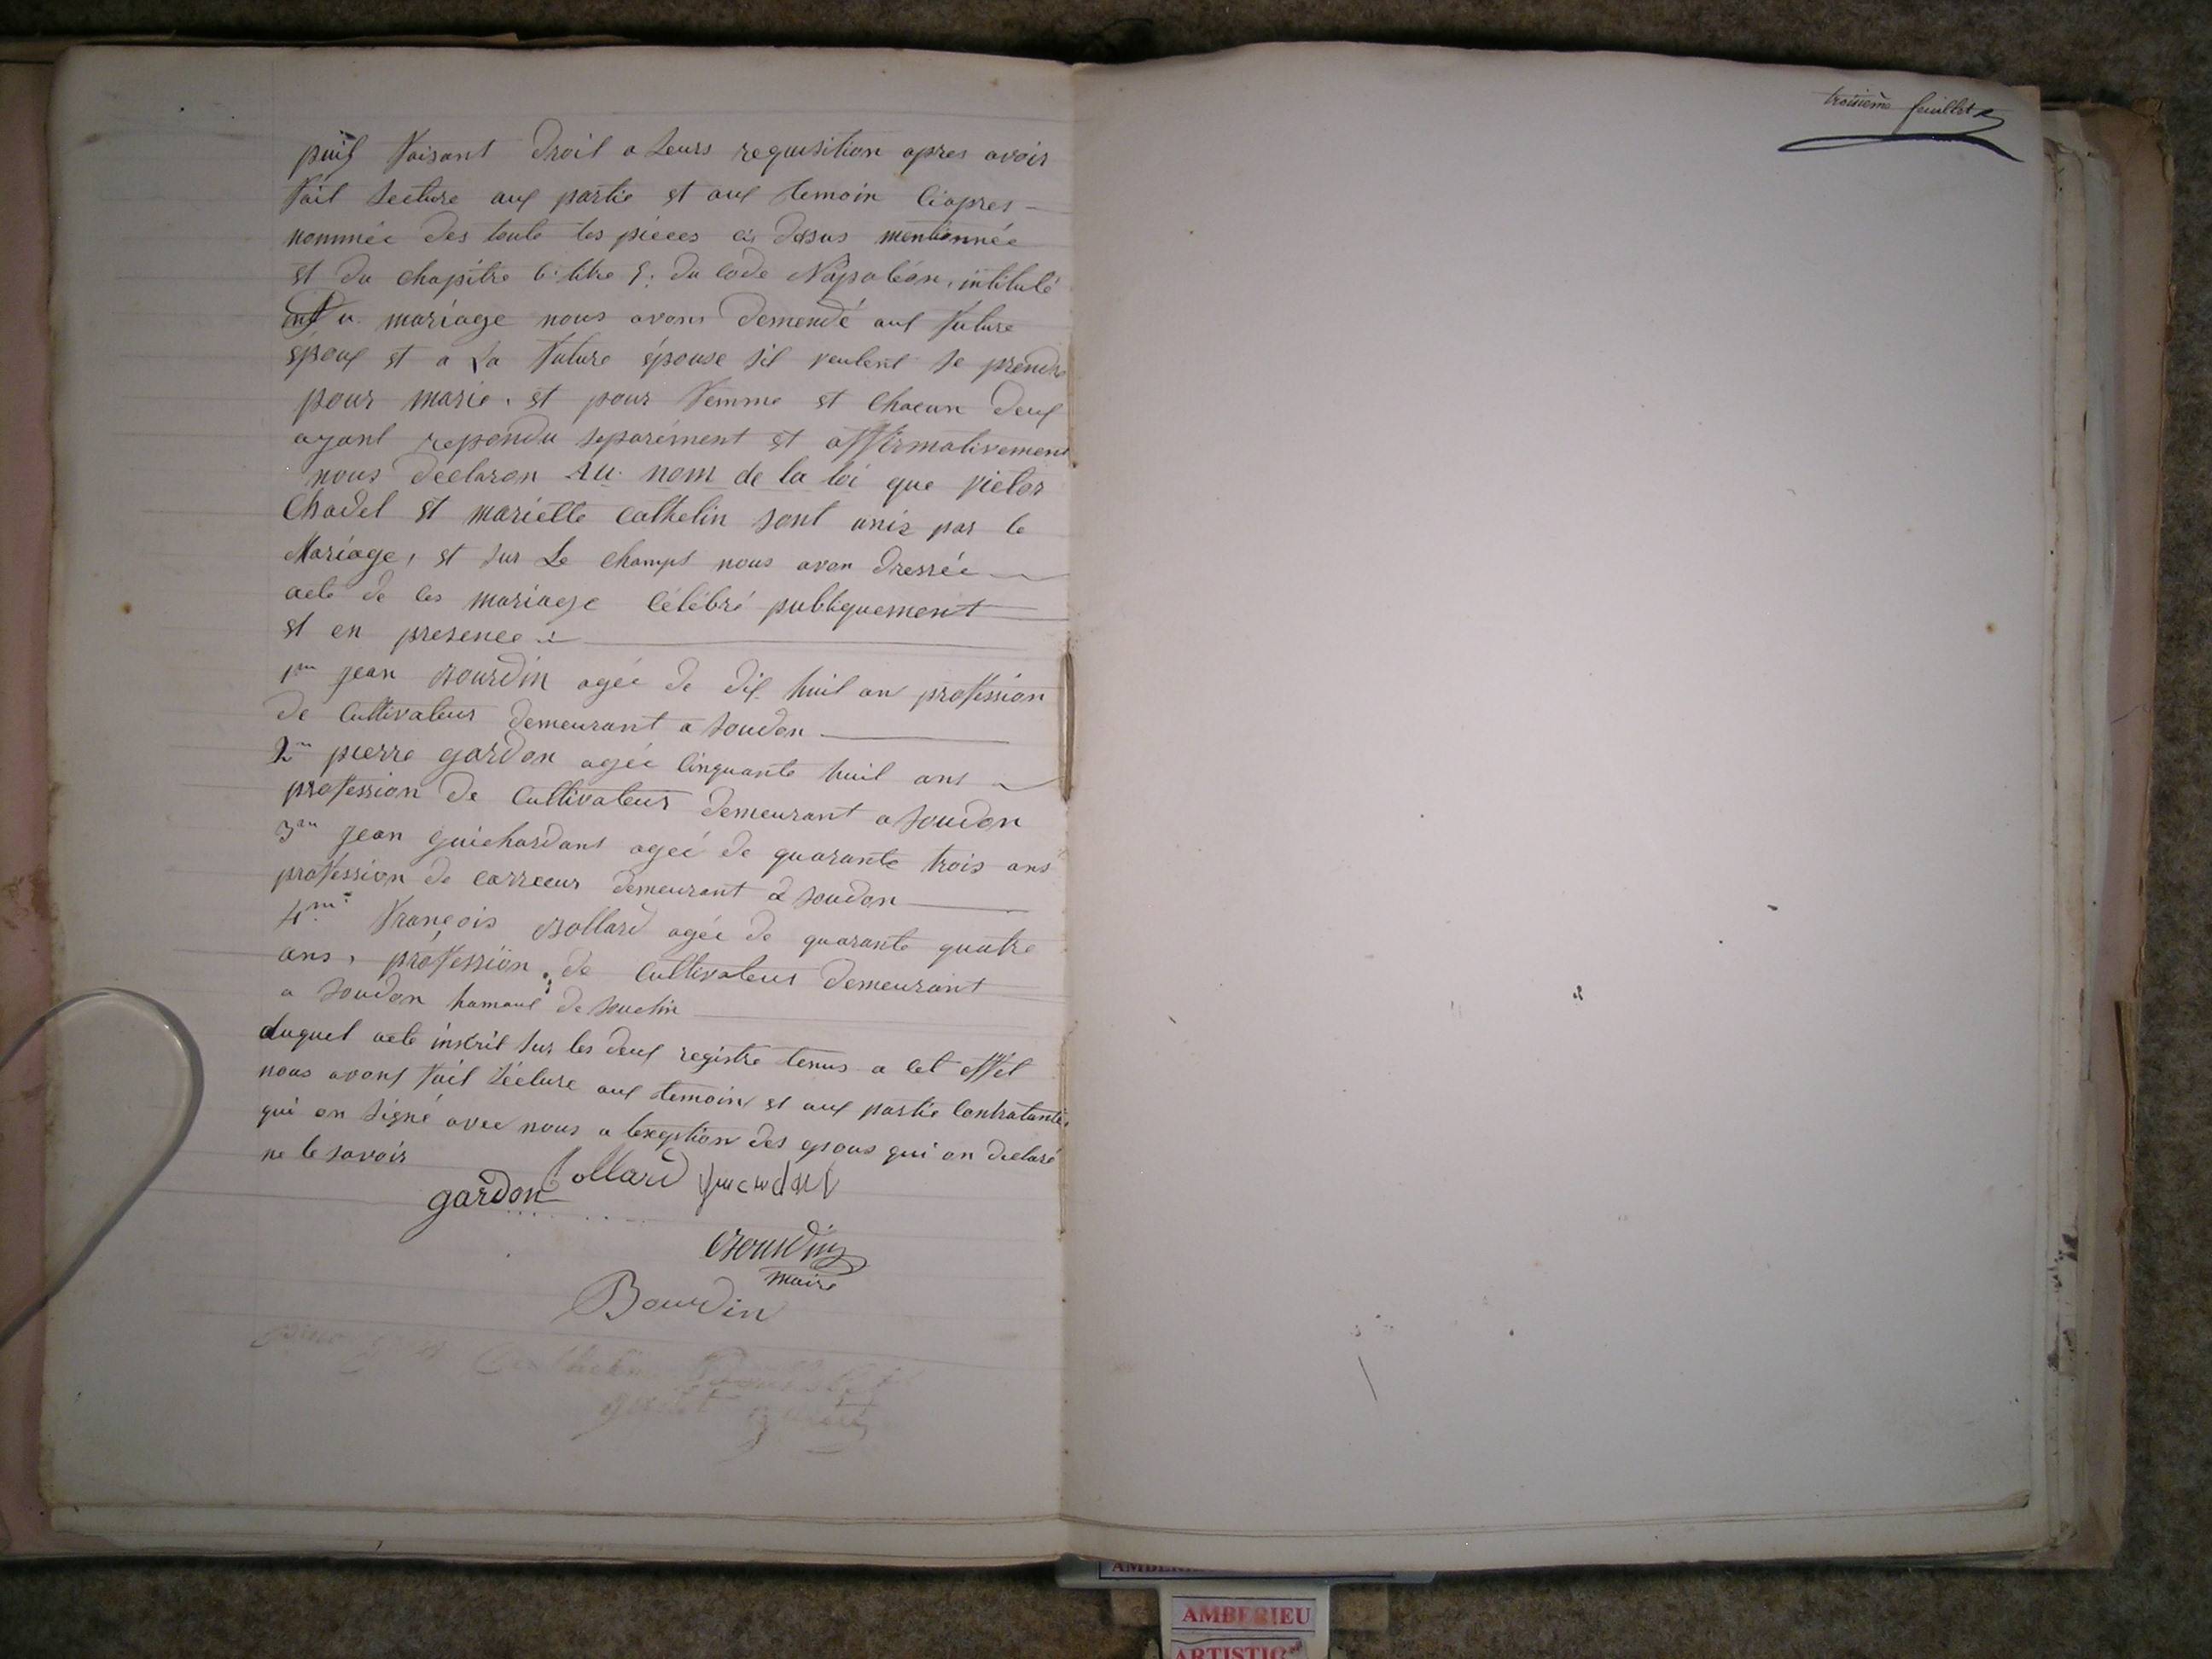 puis faisant droit a leurs requisition apres avoir
fait lecture aux partie et aux temoin ciapres
nommée des toute les pièces ci dessus mentionnée
et du chapitre 6. titre 5. du code Napoléon, intitulé
du mariage nous avons demendé aux future
epoux et a La future épouse sil veulent se prendre
pour marie. et pour femme et chacun deux
ayant repondu separément et affirmativement
nous declaron Au nom de la loi que victor
Chadel et mariette cathelin sont unis par le
Mariage, et sur Le champs nous avon dressée
acte de ces mariage célébré publiquement
et en presence :
1er jean Bourdin agée de dix huit an profession
de cultivateur demeurant a soudon
2me pierre gardon agée cinquante huit ans
profession de cultivateur demeurant a soudon
3me jean guichardant ageé de quarante trois ans
profession de carreeur demeurant a soudon
4me françois Bollard agée de quarante quatre
ans, profession de cultivateur demeurant
a soudon hamaut de souclin
duquel acte inscrit sur les deux registre tenus a cet effet
nous avons fait lécture aux temoins et aux partie contratante
qui on signé avec nous a lexeption des epous qui on declaré
ne le savoir
gardon Bollard
Bourdin
maire
Bourdin
troisième feuillet
AMBERIEU
ARTISTIC